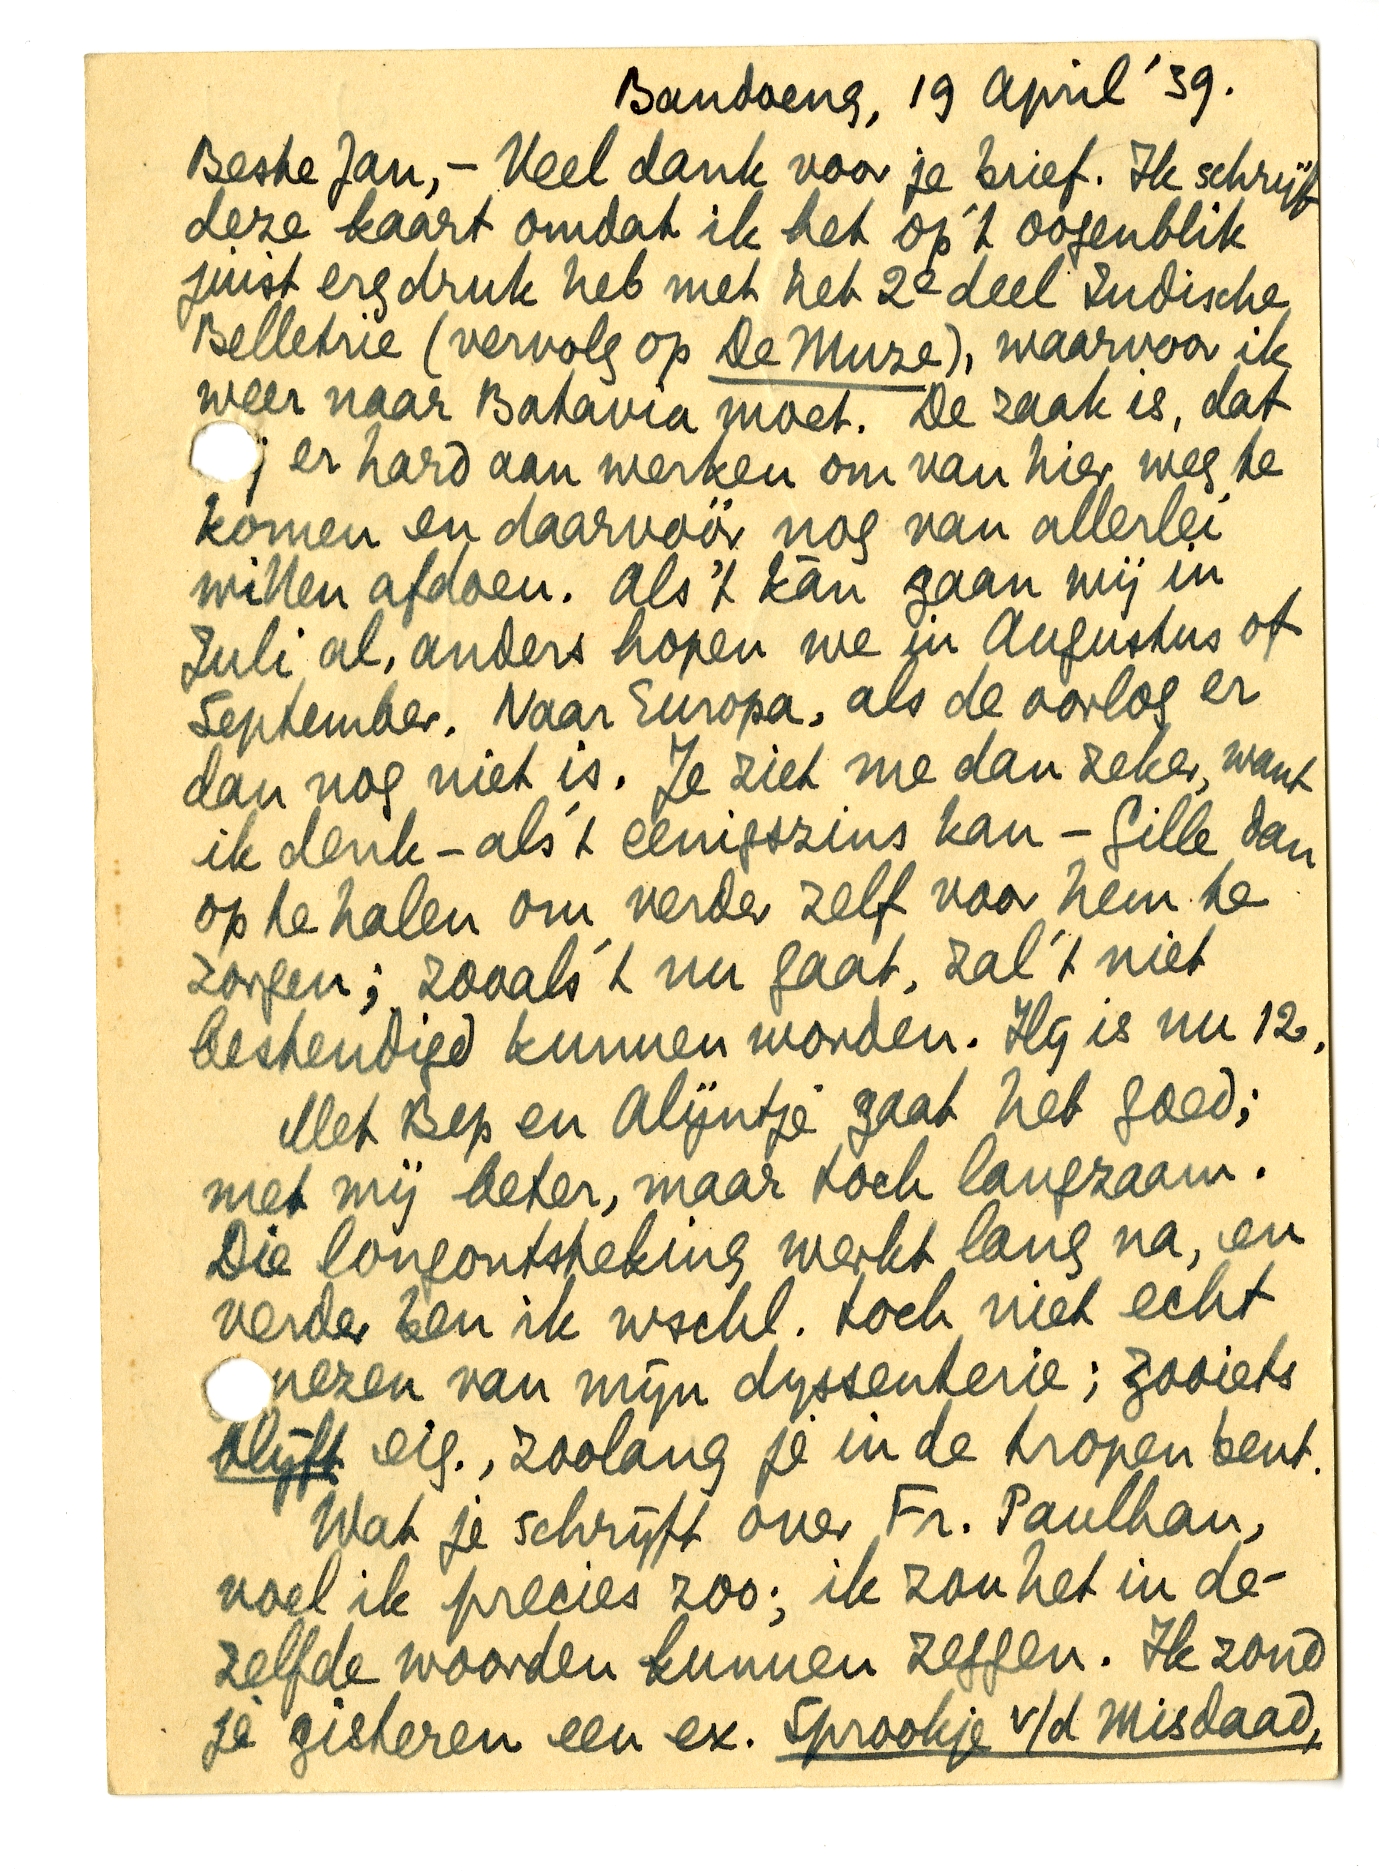 Bandoeng, 19 April '39.
Beste Jan, – Veel dank voor je brief. Ik schrijf
deze kaart omdat ik het op 't oogenblik
juist erg druk heb met het 2e deel Indische
Belletrie (vervolg op De Muze), waarvoor ik
weer naar Batavia moet. De zaak is, dat
j er hard aan werken om van hier weg te
komen en daarvoör nog van allerlei
willen afdoen. Als 't kān gaan wij in
Juli al, anders hopen we in Augustus of
September. Naar Europa, als de oorlog er
dan nog niet is. Je ziet me dan zeker, want
ik denk – als 't eenigszins kan – Gille dan
op te halen om verder zelf voor hem te
zorgen; zooals 't nu gaat, zal 't niet
bestendigd kunnen worden. Hij is nu 12.
Met Bep en Alijntje gaat het goed;
met mij beter, maar toch langzaam.
Die longontsteking werkt lang na, en
verder ben ik wschl. toch niet echt
nezen van mijn dyssenterie; zooiets
blijft eig., zoolang je in de tropen bent.
Wat je schrijft over Fr. Paulhan,
voel ik precies zoo; ik zou het in de-
zelfde woorden kunnen zeggen. Ik zond
je gisteren een ex. Sprookje v/d Misdaad,